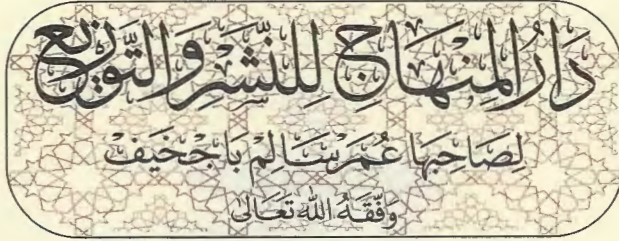 دَارُ الْمِنْهَاجِ لِلنَّشْرِ وَالتَّوْزِيعِ
لِصَاحِبِهَا عُمَرْ سَالِمْ بَاجْخَيْفْ
وَفَّقَهُ اللهُ تَعَالَى